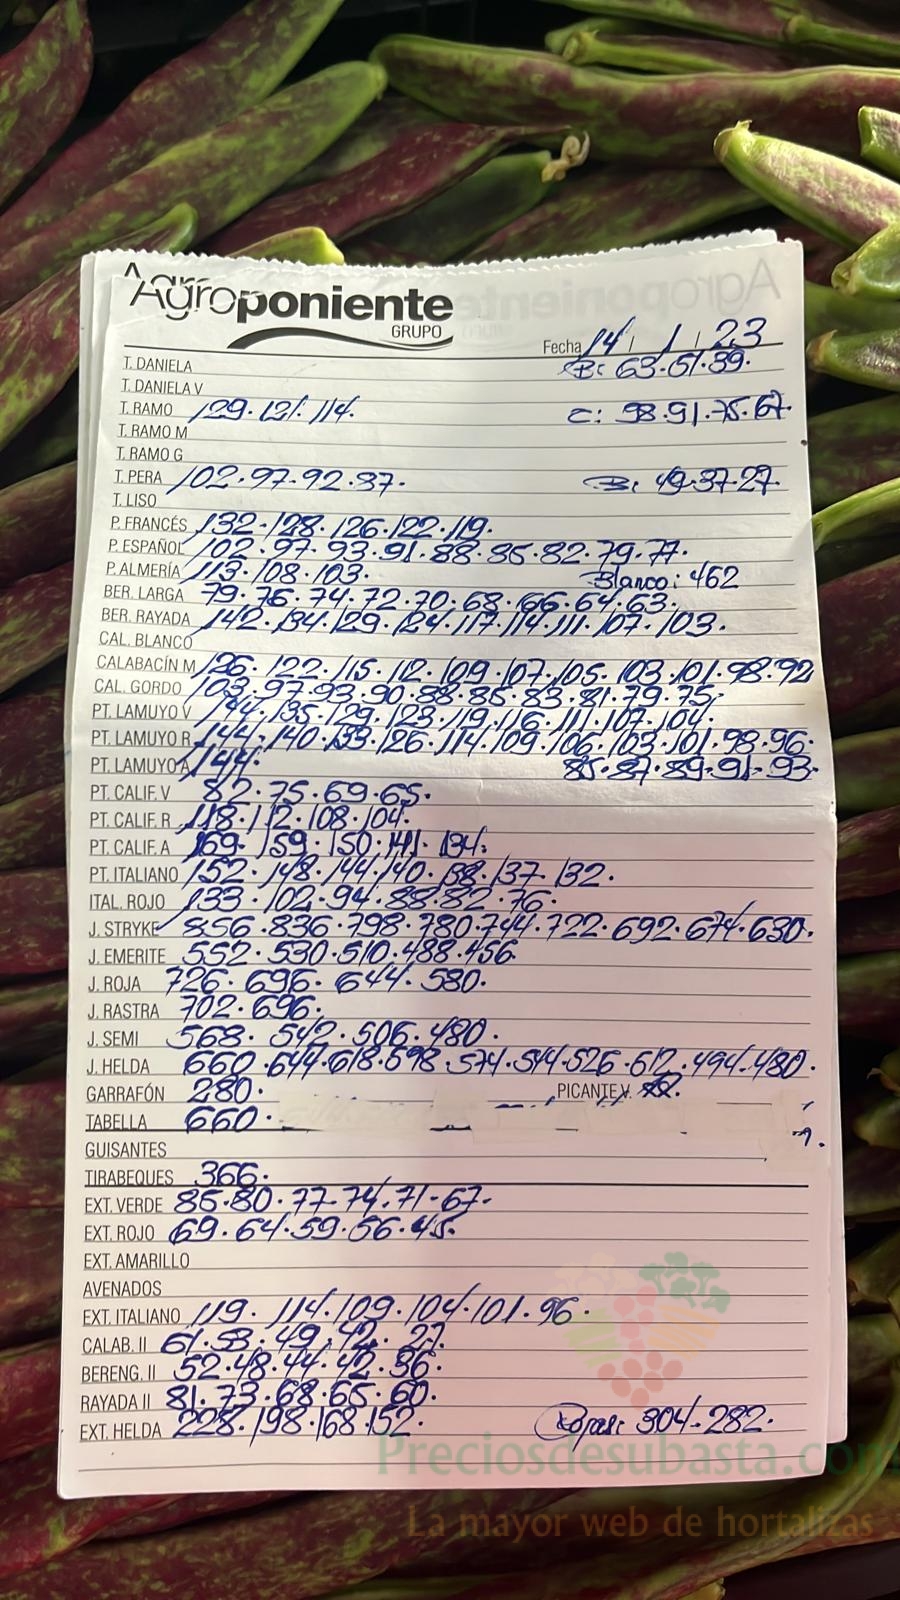 Agroponiente
GRUPO
Fecha 14 / 1 / 23
T. DANIELA B: 63.51.39.
T. DANIELA V
T. RAMO 129.121.114. C: 98.91.75.67.
T. RAMO M
T. RAMO G
T. PERA 102.97.92.87. B: 49.37.27.
T. LISO
P. FRANCÉS 132.128.126.122.119.
P. ESPAÑOL 102.97.93.91.88.85.82.79.77.
P. ALMERÍA 113.108.103. Blanco: 462
BER. LARGA 79.76.74.72.70.68.66.64.63.
BER. RAYADA 142.134.129.124.117.114.111.107.103.
CAL. BLANCO
CALABACÍN M 126.122.115.112.109.107.105.103.101.98.92
CAL. GORDO 103.97.93.90.88.85.83.81.79.75.
PT. LAMUYO V 144.135.129.123.119.116.111.107.104.
PT. LAMUYO R 144.140.133.126.114.109.106.103.101.98.96.
PT. LAMUYO A 144. 85.87.89.91.93.
PT. CALIF. V 82.75.69.65.
PT. CALIF. R 118.112.108.104.
PT. CALIF. A 169.159.150.141.134.
PT. ITALIANO 152.148.144.140.138.137.132.
ITAL. ROJO 133.102.94.88.82.76.
J. STRYKE 856.836.798.780.744.722.692.674.630.
J. EMERITE 552.530.510.488.456.
J. ROJA 726.696.644.580.
J. RASTRA 702.696.
J. SEMI 568.542.506.480.
J. HELDA 660.644.618.598.574.544.526.512.494.480.
GARRAFÓN 280. PICANTE V.
TABELLA 660.
GUISANTES
TIRABEQUES 366.
EXT. VERDE 85.80.77.74.71.67.
EXT. ROJO 69.64.59.56.45.
EXT. AMARILLO
AVENADOS
EXT. ITALIANO 119.114.109.104.101.96.
CALAB. II 61.53.49.42.27.
BERENG. II 52.48.44.42.36.
RAYADA II 81.73.68.65.60.
EXT. HELDA 228.198.168.152. 304.282.
Preciosdesubasta.com
La mayor web de hortalizas